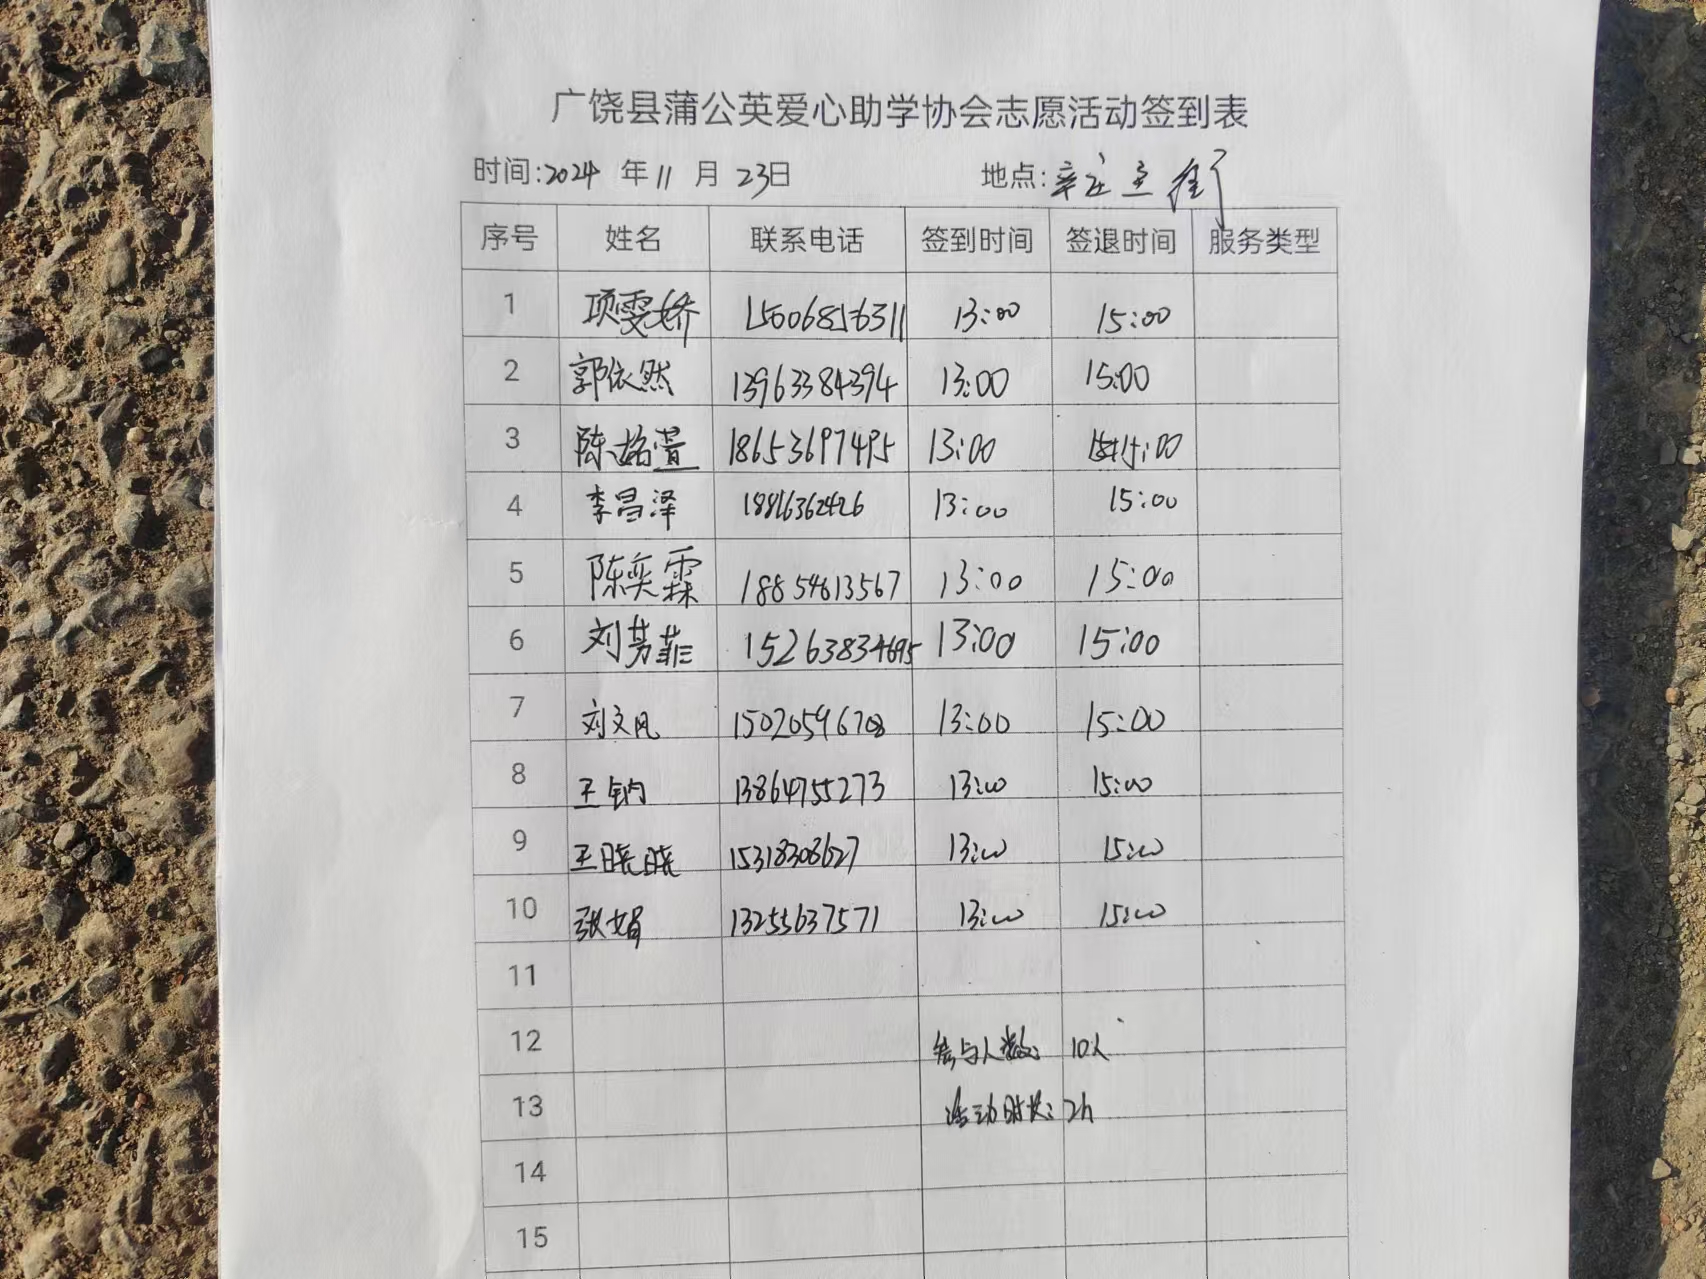 广饶县蒲公英爱心助学协会志愿活动签到表
时间:2024 年 11 月 23日 地点:辛庄主街
序号 姓名 联系电话 签到时间 签退时间 服务类型
1 项雯娇 15006816311 13:00 15:00
2 郭依然 13963384394 13:00 15:00
3 陈铭萱 18653697495 13:00 15:00
4 李昌泽 13:00 15:00
5 陈奕霖 18854613567 13:00 15:00
6 刘芳菲 15263834695 13:00 15:00
7 刘文凡 15020596708 13:00 15:00
8 王钠 13864755273 13:00 15:00
9 王晓晓 15318308627 13:00 15:00
10 张娟 13255637571 13:00 15:00
11
12 参与人数: 10人
13 活动时长: 2h
14
15